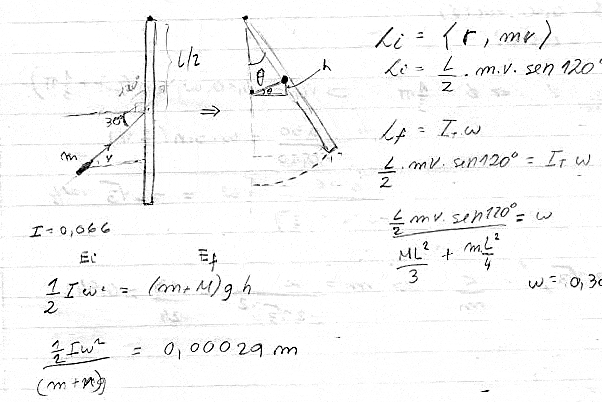 L/2
120°
30°
m
v
⇒
θ
h
Li = ⟨r, mv⟩
Li = L/2 . m.v. sen 120°
Lf = I_T ω
L/2 . mv. sen 120° = I_T ω
(L/2 mv. sen 120°) / (ML²/3 + mL²/4) = ω
ω = 0,30
I = 0,066
Ei Ef
1/2 I ω² = (m+M) g h
(1/2 I ω²) / ((m+M)g) = 0,00029 m